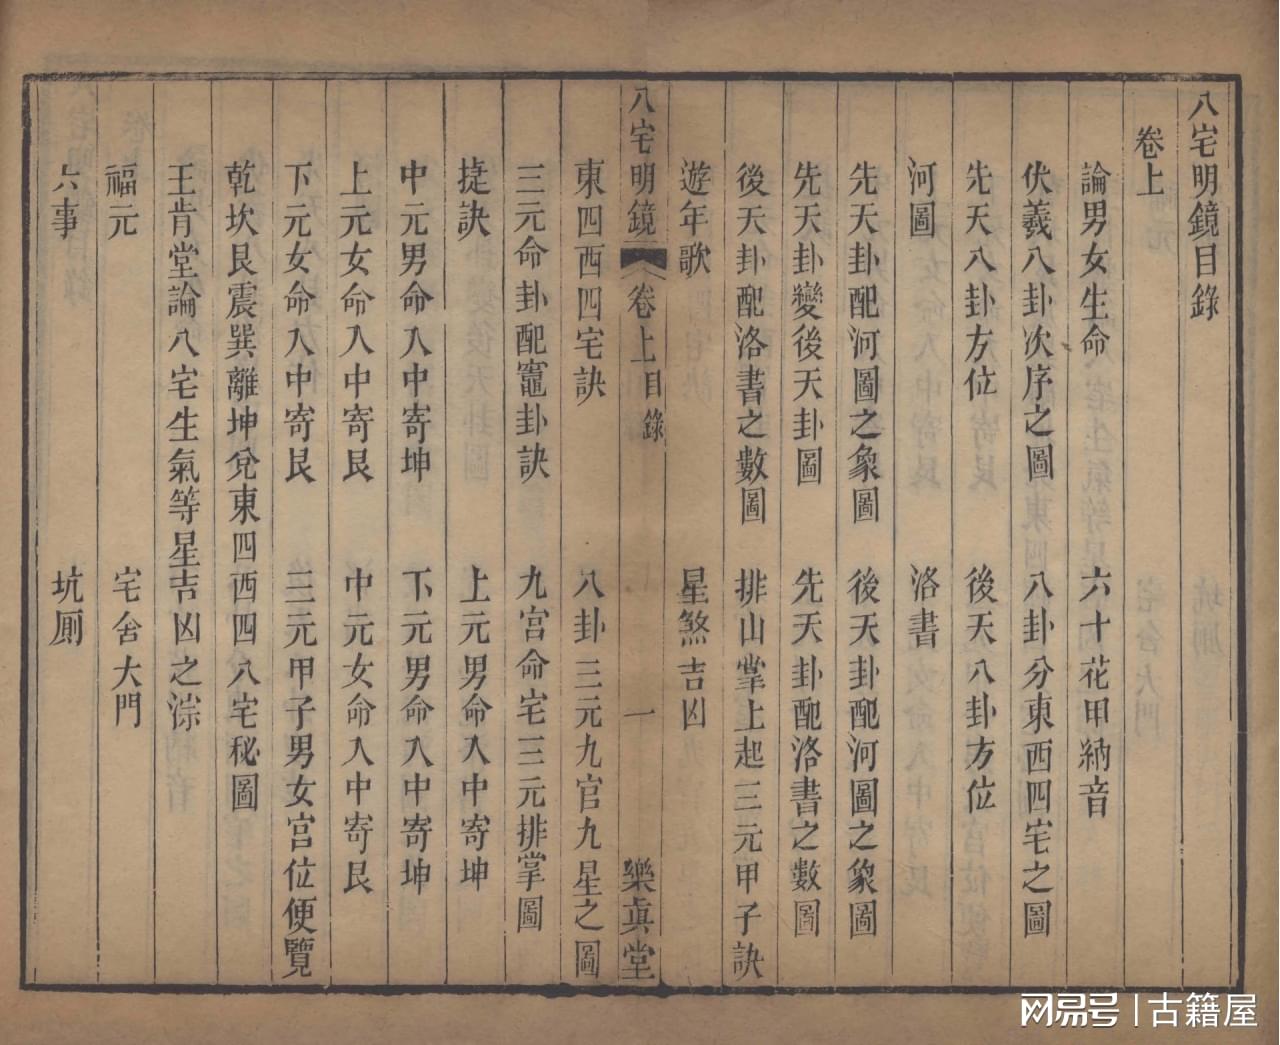 八宅明鏡目錄
卷上
論男女生命　六十花甲納音
伏羲八卦次序之圖　八卦分東西四宅之圖
先天八卦方位　後天八卦方位
河圖　洛書
先天卦配河圖之象圖　後天卦配河圖之象圖
先天卦變後天卦圖　先天卦配洛書之數圖
後天卦配洛書之數圖　排山掌上起三元甲子訣
遊年歌　星煞吉凶
八宅明鏡　卷上目錄　一　樂真堂
東四西四宅訣　八卦三元九官九星之圖
三元命卦配竈卦訣　九宮命宅三元排掌圖
捷訣　上元男命入中寄坤
中元男命入中寄坤　下元男命入中寄坤
上元女命入中寄艮　中元女命入中寄艮
下元女命入中寄艮　三元甲子男女宮位便覽
乾坎艮震巽離坤兌東四西四八宅秘圖
王肯堂論八宅生氣等星吉凶之淙
福元　宅舍大門
六事　坑厠
网易号 | 古籍屋